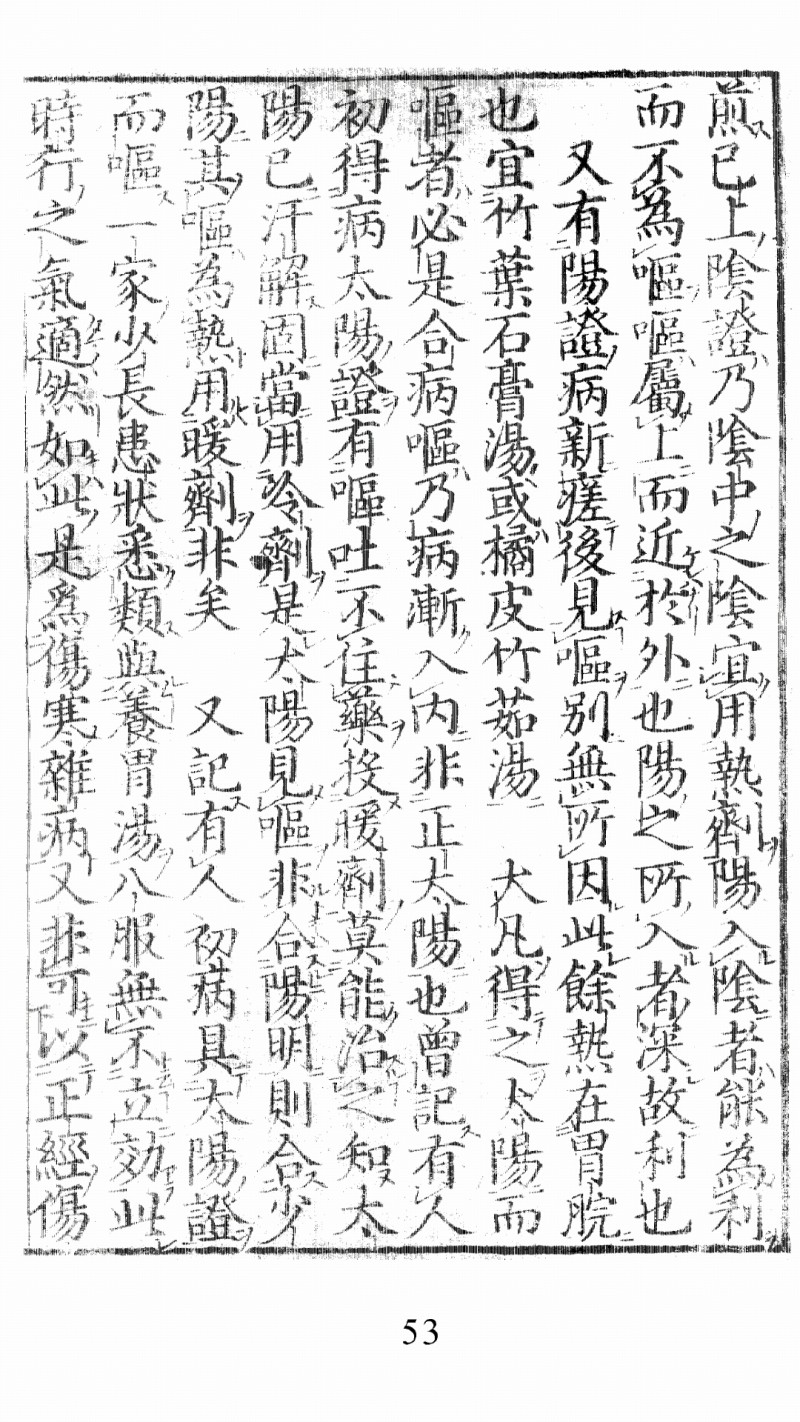 煎已上陰證乃陰中之陰宜用熱劑陽入陰者能為利
而不為嘔嘔屬上而近於外也陽之所入者深故利也
又有陽證病新瘥後見嘔別無所因此餘熱在胃脘
也宜竹葉石膏湯或橘皮竹茹湯　大凡得之太陽而
嘔者必是合病嘔乃病漸入內非正太陽也曾記有人
初得病太陽證有嘔吐不住藥投暖劑莫能治之知太
陽已汗解固當用冷劑是太陽見嘔非合陽明則合少
陽其嘔為熱用暖劑非矣　又記有人初病具太陽證
而嘔一家少長患狀悉類與養胃湯八服無不立効此
時行之氣適然如此是爲傷寒雜病又非可以正經傷
53